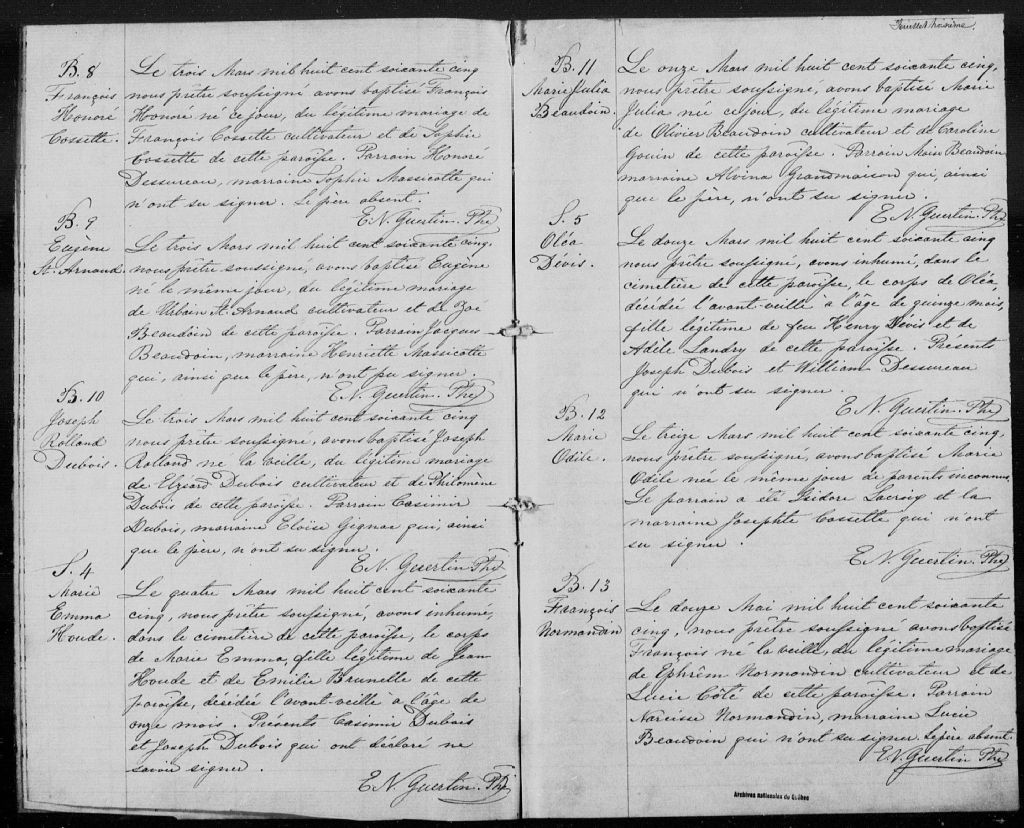 B. 8
François
Honoré
Cossette.
Le trois Mars mil huit cent soixante cinq
nous prêtre soussigné avons baptisé François
Honoré né ce jour, du légitime mariage de
François Cossette cultivateur et de Sophie
Cossette de cette paroisse. Parrain Honoré
Dessureau, marraine Sophie Massicotte qui
n'ont su signer. Le père absent.
E. N. Guertin. Ptre
B. 9
Eugène
St. Arnaud.
Le trois Mars mil huit cent soixante cinq,
nous prêtre soussigné, avons baptisé Eugène
né le même jour, du légitime mariage
de Urbain St. Arnaud cultivateur et de Zoé
Beaudoin de cette paroisse. Parrain Jacques
Beaudoin, marraine Henriette Massicotte
qui, ainsi que le père, n'ont pu signer.
E. N. Guertin. Ptre
B. 10
Joseph
Rolland
Dubois.
Le trois Mars mil huit cent soixante cinq
nous prêtre soussigné, avons baptisé Joseph
Rolland né la veille, du légitime mariage
de Elzéard Dubois cultivateur et de Philomène
Dubois de cette paroisse. Parrain Casimir
Dubois, marraine Eloïse Gegnac qui, ainsi
que le père, n'ont su signer.
E. N. Guertin. Ptre
S. 4
Marie
Emma
Houde.
Le quatre Mars mil huit cent soixante
cinq, nous prêtre soussigné, avons inhumé,
dans le cimetière de cette paroisse, le corps
de Marie Emma, fille légitime de Jean
Houde et de Emilie Brunelle de cette
paroisse, décédée l'avant-veille à l'âge de
onze mois. Présents Casimir Dubois
et Joseph Dubois qui ont déclaré ne
savoir signer.
E. N. Guertin. Ptre
Feuillet troisième.
B. 11
Marie Julia
Beaudoin.
Le onze Mars mil huit cent soixante cinq,
nous prêtre soussigné, avons baptisé Marie
Julia née ce jour, du légitime mariage
de Olivier Beaudoin cultivateur et de Caroline
Gouin de cette paroisse. Parrain Moïse Beaudoin
marraine Alvina Grandmaison qui, ainsi
que le père, n'ont su signer.
E. N. Guertin. Ptre
S. 5
Oléa
Dévis.
Le douze Mars mil huit cent soixante cinq
nous prêtre soussigné, avons inhumé, dans le
cimetière de cette paroisse, le corps de Oléa,
décédée l'avant-veille à l'âge de quinze mois,
fille légitime de feu Henry Dévis et de
Adèle Landry de cette paroisse. Présents
Joseph Dubois et William Dessureau
qui n'ont su signer.
E. N. Guertin. Ptre
B. 12
Marie
Odile.
Le treize Mars mil huit cent soixante cinq,
nous prêtre soussigné, avons baptisé Marie
Odile née le même jour de parents inconnus.
Le parrain a été Isidore Lacroix et la
marraine Josephte Cossette qui n'ont
su signer.
E. N. Guertin. Ptre
B. 13
François
Normandin
Le douze Mai mil huit cent soixante
cinq, nous prêtre soussigné avons baptisé
François né la veille, du légitime mariage
de Ephrèm Normandin cultivateur et de
Lucie Côté de cette paroisse. Parrain
Narcisse Normandin, marraine Lucie
Beaudoin qui n'ont su signer. Le père absent.
E. N. Guertin Ptre
Archives nationales du Québec